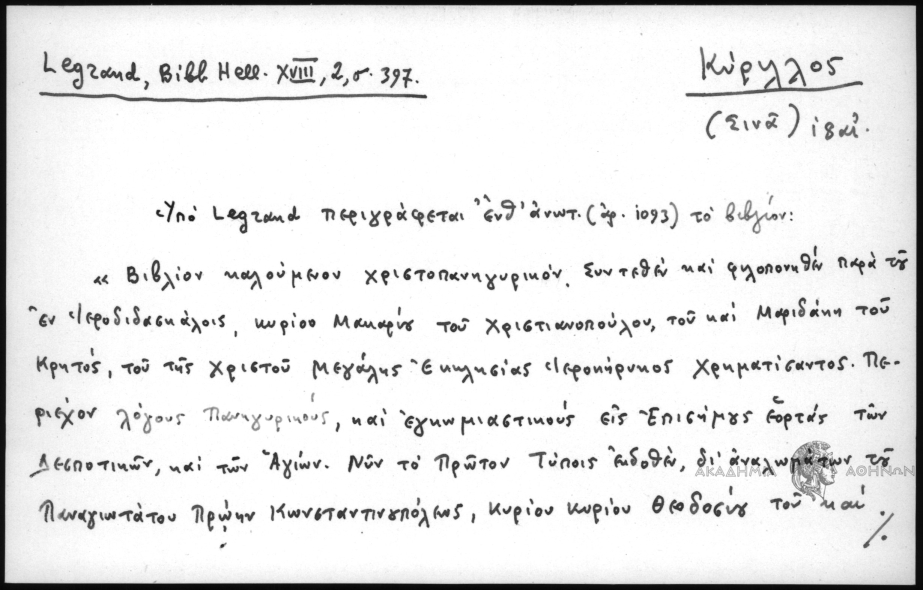 Legrand, Bibl. Hell. XVIII, 2, σ. 397.
Κύριλλος
(Σινᾶ) ιδαί.
Ὑπό Legrand περιγράφεται ἐνθ' ἀνωτ. (ἀρ. 1093) τὸ βιβλίον:
« Βιβλίον καλούμενον χριστοπανηγυρικόν. Συντεθέν καί φιλοπονηθέν παρά τȣ
ἐν Ἱεροδιδασκάλοις, κυρίου Μακαρίȣ τοῦ Χριστιανοπούλου, τοῦ καί Μαριδάκη τοῦ
Κρητός, τοῦ τῆς Χριστοῦ Μεγάλης Ἐκκλησίας Ἱεροκήρυκος Χρηματίσαντος. Πε-
ριέχον λόγους Πανηγυρικούς, καί ἐγκωμιαστικούς εἰς Ἐπισήμȣς ἑορτάς τῶν
Δεσποτικῶν, καί τῶν Ἁγίων. Νῦν τό Πρῶτον Τύποις Ἐκδοθέν, δι' ἀναλωμάτων τȣ
Παναγιωτάτου Πρῴην Κωνσταντινȣπόλεως, Κυρίου Κυρίου Θεοδοσίȣ τοῦ καί
./.
ΑΚΑΔΗΜΙΑ ΑΘΗΝΩΝ